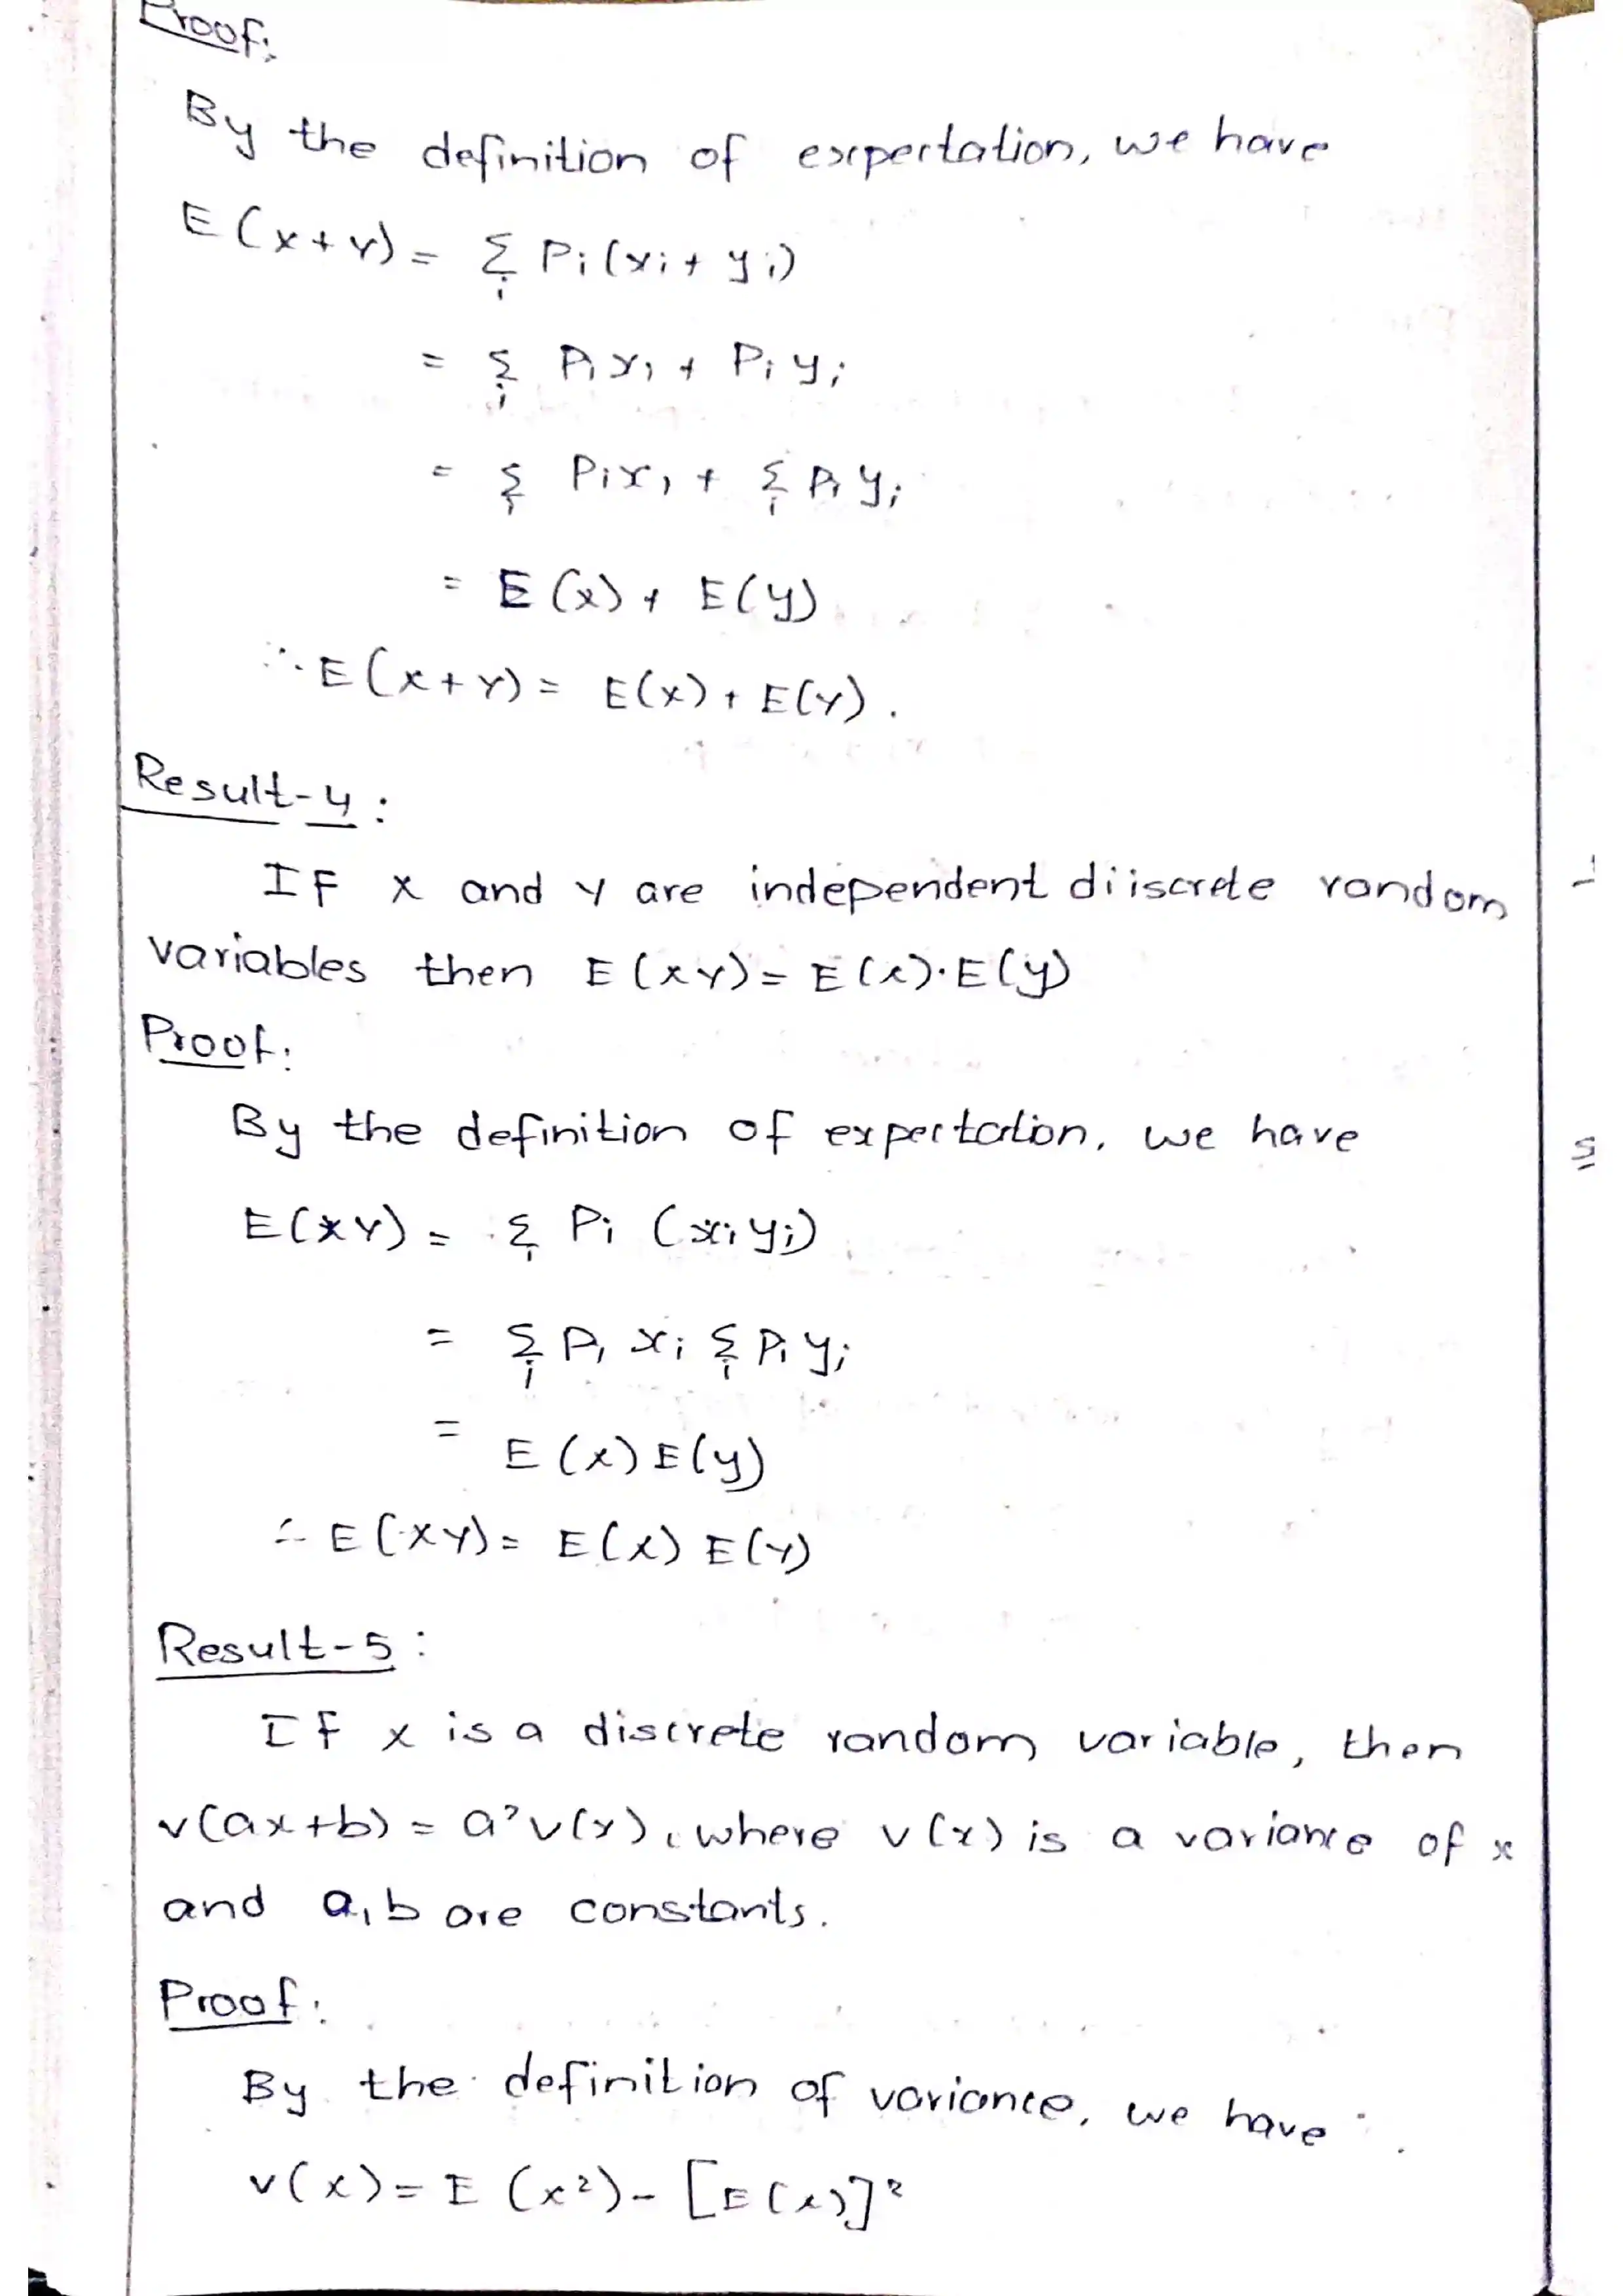 Proof:
By the definition of expectation, we have
E(x+y) = Σ_i Pi(xi + yi)
= Σ_i Pi xi + Pi yi
= Σ_i Pi xi + Σ_i Pi yi
= E(x) + E(y)
∴ E(x+y) = E(x) + E(y).
Result-4 :
If x and y are independent diiscrete random
variables then E(xy) = E(x)·E(y)
Proof:
By the definition of expectation, we have
E(xy) = Σ_i Pi (xi yi)
= Σ_i Pi xi Σ_i Pi yi
= E(x) E(y)
∴ E(xy) = E(x) E(y)
Result-5 :
If x is a discrete random variable, then
v(ax+b) = a²v(x), where v(x) is a variance of x
and a, b are constants.
Proof:
By the definition of variance, we have
v(x) = E(x²) - [E(x)]²